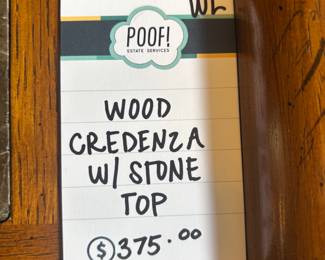 WL
POOF!
ESTATE SERVICES
WOOD
CREDENZA
W/ STONE
TOP
$375.00